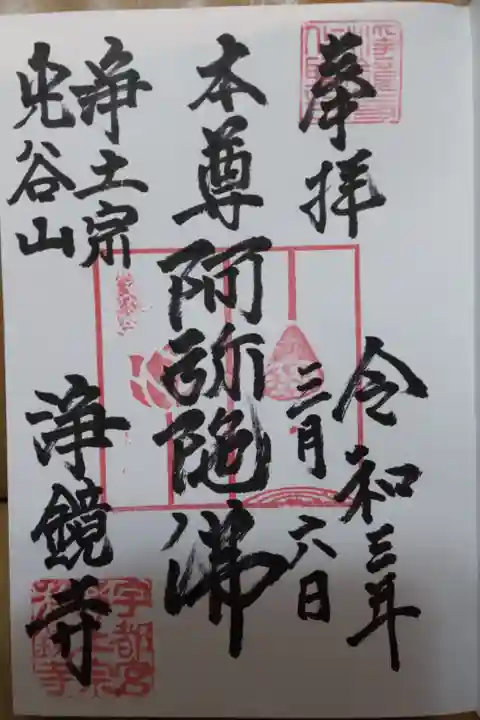 奉拝
令和三年
三月六日
本尊阿弥陀佛
浄土宗
兜谷山
浄鏡寺
宇都宮